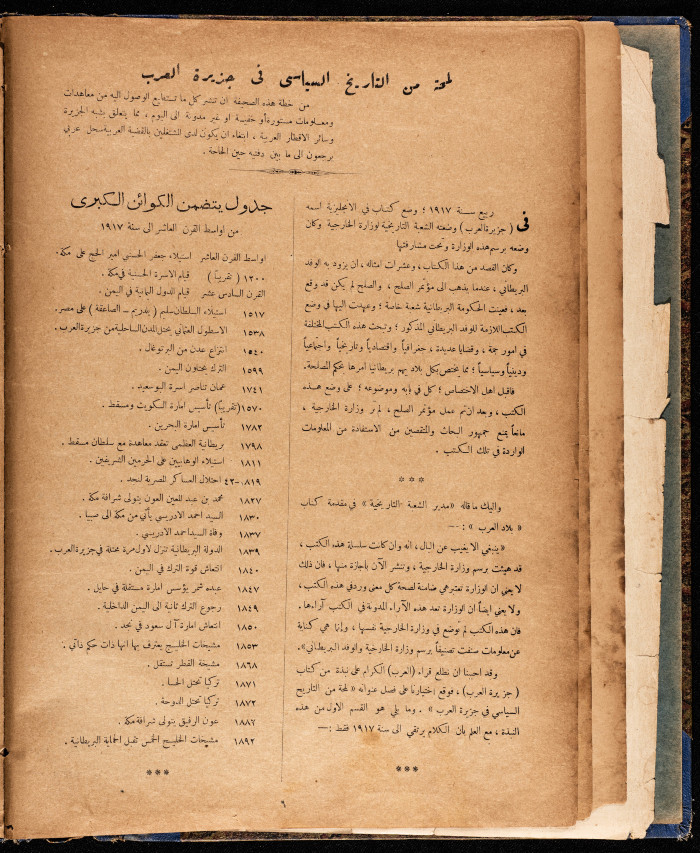 لمحة من التاريخ السياسى فى جزيرة العرب
من خطة هذه الصحيفة ان تنشر كل ما تستطيع الوصول اليه من معاهدات
ومعلومات مستورة أو خفية او غير مدونة الى اليوم ، مما يتعلق بشبه الجزيرة
وسائر الاقطار العربية ، ابتغاء ان يكون لدى المشتغلين بالقضية العربية سجل عربي
يرجعون الى ما بين دفتيه حين الحاجة .
فى ربيع سنة ١٩١٧ ؛ وضع كتاب في الانجليزية اسمه
( جزيرة العرب ) وضعته الشعبة التاريخية لوزارة الخارجية وكان
وضعه برسم هذه الوزارة وتحت مشارفتها
وكان القصد من هذا الكتاب ، وعشرات امثاله ، ان يزود به الوفد
البريطاني ، عندما يذهب الى مؤتمر الصلح ، والصلح لم يكن قد وقع
بعد ، فعينت الحكومة البريطانية شعبة خاصة ؛ وعهدت اليها في وضع
الكتب اللازمة للوفد البريطاني المذكور ؛ وتبحث هذه الكتب المختلفة
في امور جمة ، وقضايا عديدة ، جغرافياً واقتصادياً وتاريخياً واجتماعياً
ودينياً وسياسياً ؛ مما يختص بكل بلاد يهم بريطانيا امرها بحكم المصلحة.
فاقبل اهل الاختصاص ؛ كل في بابه وموضوعه ؛ على وضع هذه
الكتب ، وبعد ان تم عمل مؤتمر الصلح ، لم تر وزارة الخارجية ،
مانعاً يمنع جمهور البحاث والمتقصين من الاستفادة من المعلومات
الواردة في تلك الكتب .
* * *
واليك ما قاله «مدير الشعبة التاريخية» في مقدمة كتاب
« بلاد العرب » : —
« ينبغي الا يغيب عن البال ، انه وان كانت سلسلة هذه الكتب ،
قد هيئت برسم وزارة الخارجية ، وتنشر الآن باجازة منها ، فان ذلك
لا يعني ان الوزارة تعتبر هي ضامنة لصحة كل معنى ورد في هذه الكتب ،
ولا يعني ايضاً ان الوزارة تعد هذه الآراء المدونة في الكتب آراءها .
فان هذه الكتب لم توضع في وزارة الخارجية نفسها ، وانما هي كناية
عن معلومات صنفت تصنيفاً برسم وزارة الخارجية والوفد البريطاني».
وقد احببنا ان نطلع قراء (العرب) الكرام على نبذة من كتاب
( جزيرة العرب) ، فوقع اختيارنا على فصل عنوانه « لمحة من التاريخ
السياسي في جزيرة العرب » . وما يلي هو القسم الاول من هذه
النبذة ، مع العلم بأن الكلام يرتقي الى سنة ١٩١٧ فقط :—
* * *
جدول يتضمن الكوائن الكبرى
من اواسط القرن العاشر الى سنة ١٩١٧
اواسط القرن العاشر استيلاء جعفر الحسني امير الحج على مكة .
١٢٠٠ (تقريباً) قيام الاسرة الحسنية في مكة .
القرن السادس عشر قيام الدول اليمانية في اليمن .
١٥١٧ استيلاء السلطان سليم ( بلدرم — الصاعقة ) على مصر.
١٥٣٨ الاسطول العثماني يحتل المدن الساحلية من جزيرة العرب.
١٥٤٠ انتزاع عدن من البرتوغال .
١٥٩٩ الترك يحتلون اليمن .
١٧٤١ عمان تناصر اسرة البوسعيد .
١٥٧٠(تقريباً) تأسيس امارة الكويت ومسقط .
١٧٨٢ تأسيس امارة البحرين .
١٧٩٨ بريطانية العظمى تعقد معاهدة مع سلطان مسقط .
١٨١١ استيلاء الوهابيين على الحرمين الشريفين .
١٨١٩-٤٢ احتلال العساكر المصرية لنجد .
١٨٢٧ محمد بن عبد المعين العون يتولى شرافة مكة .
١٨٣٠ السيد احمد الادريسي يأتي من مكة الى صبيا .
١٨٣٧ وفاة السيد احمد الادريسي .
١٨٣٩ الدولة البريطانية تنزل لاول مرة محتلة في جزيرة العرب.
١٨٤٠ انتعاش قوة الترك في اليمن .
١٨٤٧ عبده شمر يؤسس امارة مستقلة في حايل .
١٨٤٩ رجوع الترك ثانية الى اليمن الداخلية .
١٨٥٠ انتعاش امارة آل سعود في نجد .
١٨٥٣ مشيخات الخليج يعترف بها انها ذات حكم ذاتي .
١٨٦٨ مشيخة القطر تستقل .
١٨٧١ تركيا تحتل الحسا .
١٨٧٢ تركيا تحتل الدوحة .
١٨٨٢ عون الرفيق يتولى شرافة مكة .
١٨٩٢ مشيخات الخليج الخمس تقبل الحماية البريطانية .
* * *
٩